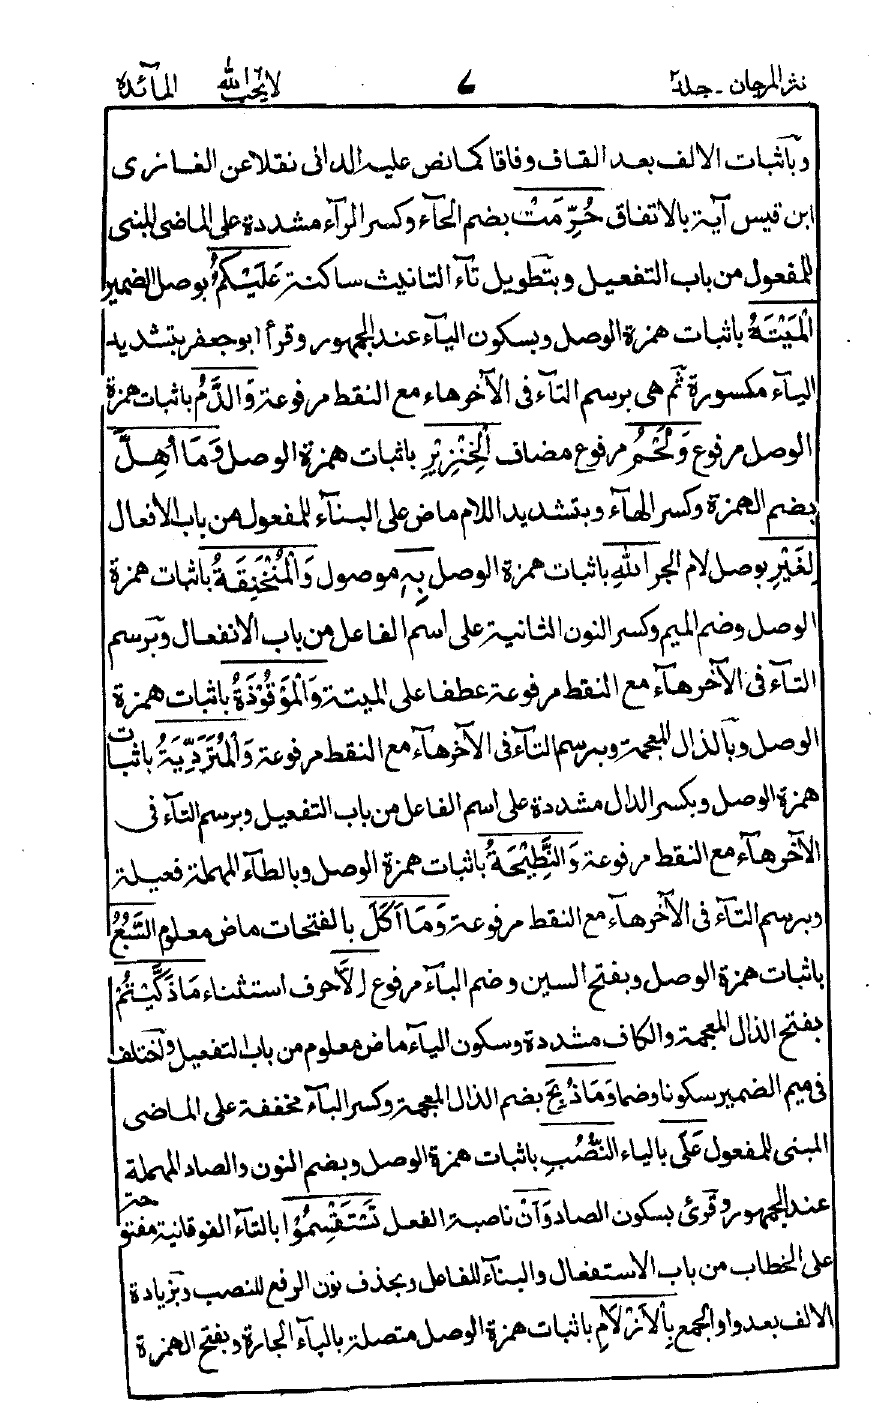 نثر المرجان - جلد٢ ٧ لا يحب الله المآئدة
وبآثبات الالف بعد القاف وفاقا كما نص عليه الدانى نقلا عن الغازى
ابن قيس آية بالاتفاق حُرِّمَتْ بضم الحآء وكسر الرآء مشددة على الماضى المبنى
للمفعول من باب التفعيل وبتطويل تآء التانيث ساكنة عَلَيْكُمُ بوصل الضمير
الْمَيْتَةُ باثبات همزة الوصل وبسكون اليآء عند الجمهور وقرأ ابو جعفر بتشديد
اليآء مكسورة ثم هى برسم التآء فى الآخر هاء مع النقط مرفوعة وَالدَّمُ باثبات همزة
الوصل مرفوع وَلَحْمُ مرفوع مضاف الْخِنْزِيْرِ باثبات همزة الوصل وَمَا اُهِلَّ
بضم الهمزة وكسر الهآء وبتشديد اللام ماض على البنآء للمفعول من باب الافعال
لِغَيْرِ بوصل لام الجر اللهِ باثبات همزة الوصل بِهٖ موصول وَالْمُنْخَنِقَةُ باثبات همزة
الوصل وضم الميم وكسر النون الثانية على اسم الفاعل من باب الانفعال وبرسم
التآء فى الآخر هآء مع النقط مرفوعة عطفا على الميتة وَالْمَوْقُوْذَةُ باثبات همزة
الوصل وبآلذال المعجمة وبرسم التآء فى الآخر هآء مع النقط مرفوعة وَالْمُتَرَدِّيَةُ باثبات
همزة الوصل وبكسر الدال مشددة على اسم الفاعل من باب التفعيل وبرسم التآء فى
الآخر هآء مع النقط مرفوعة وَالنَّطِيْحَةُ باثبات همزة الوصل وبالطآء المهملة فعيلة
وبرسم التآء فى الآخر هآء مع النقط مرفوعة وَمَا اَكَلَ بالفتحات ماض معلوم السَّبُعُ
باثبات همزة الوصل وبفتح السين وضم البآء مرفوع اِلَّا حرف استثناء مَا ذَكَّيْتُمْ
بفتح الذال المعجمة والكاف مشددة وسكون اليآء ماض معلوم من باب التفعيل واختلف
فى ميم الضمير سكونا وضما وَمَا ذُبِحَ بضم الذال المعجمة وكسر البآء مخففة على الماضى
المبنى للمفعول عَلَى بالياء النُّصُبِ باثبات همزة الوصل وبضم النون والصاد المهملة
عند الجمهور وقرئ بسكون الصاد وَاَنْ ناصبة الفعل تَسْتَقْسِمُوْا بالتآء الفوقانية مفتوحة
على الخطاب من باب الاستفعال والبنآء للفاعل وبحذف نون الرفع للنصب وبزيادة
الالف بعد واو الجمع بِالْاَزْلَامِ باثبات همزة الوصل متصلة بالبآء الجارة وبفتح الهمزة